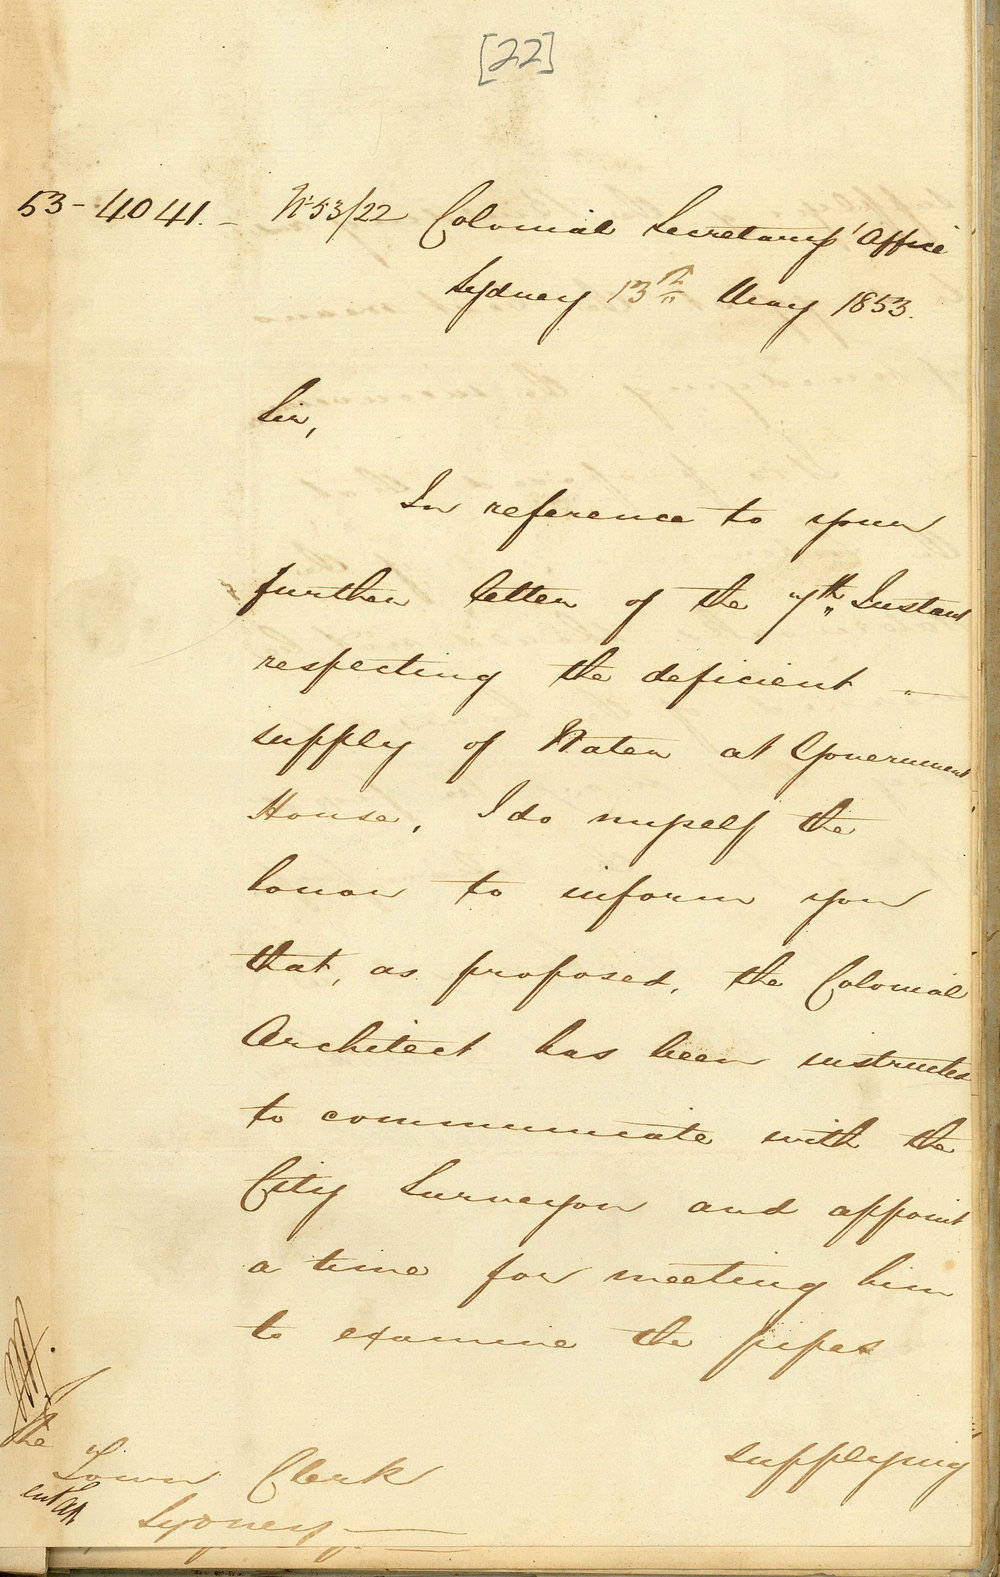 [22]
53-4041. - No 53/22 Colonial Secretary's Office
Sydney 13th May 1853.
Sir,
In reference to your
further letter of the 7th Instant
respecting the deficient
supply of Water at Government
House, I do myself the
honor to inform you
that, as proposed, the Colonial
Architect has been instructed
to communicate with the
City Surveyor and appoint
a time for meeting him
to examine the pipes
supplying
The
Town Clerk
Sydney